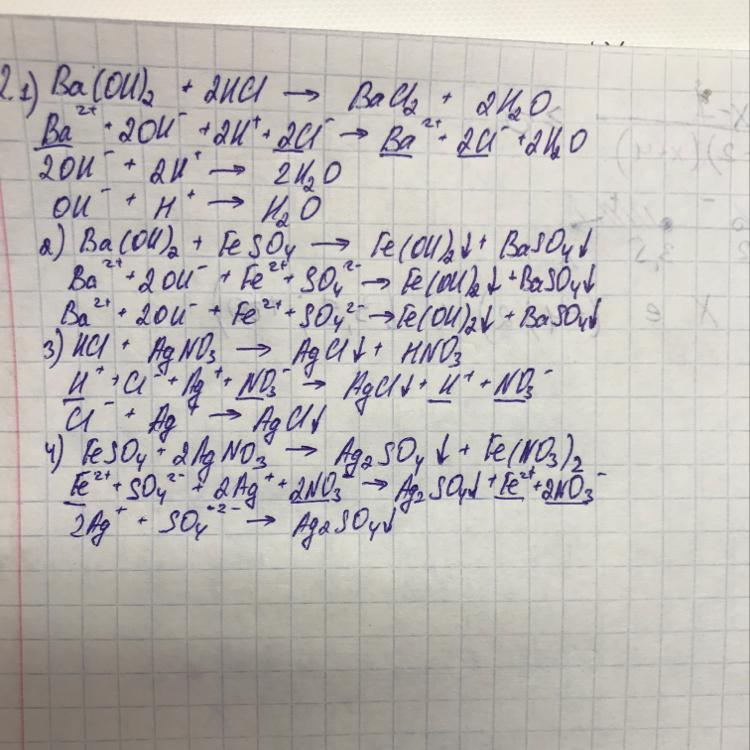 2.1) Ba(OH)₂ + 2HCl → BaCl₂ + 2H₂O
Ba²⁺ + 2OH⁻ + 2H⁺ + 2Cl⁻ → Ba²⁺ + 2Cl⁻ + 2H₂O
2OH⁻ + 2H⁺ → 2H₂O
OH⁻ + H⁺ → H₂O
2) Ba(OH)₂ + FeSO₄ → Fe(OH)₂↓ + BaSO₄↓
Ba²⁺ + 2OH⁻ + Fe²⁺ + SO₄²⁻ → Fe(OH)₂↓ + BaSO₄↓
Ba²⁺ + 2OH⁻ + Fe²⁺ + SO₄²⁻ → Fe(OH)₂↓ + BaSO₄↓
3) HCl + AgNO₃ → AgCl↓ + HNO₃
H⁺ + Cl⁻ + Ag⁺ + NO₃⁻ → AgCl↓ + H⁺ + NO₃⁻
Cl⁻ + Ag⁺ → AgCl↓
4) FeSO₄ + 2AgNO₃ → Ag₂SO₄↓ + Fe(NO₃)₂
Fe²⁺ + SO₄²⁻ + 2Ag⁺ + 2NO₃⁻ → Ag₂SO₄↓ + Fe²⁺ + 2NO₃⁻
2Ag⁺ + SO₄²⁻ → Ag₂SO₄↓